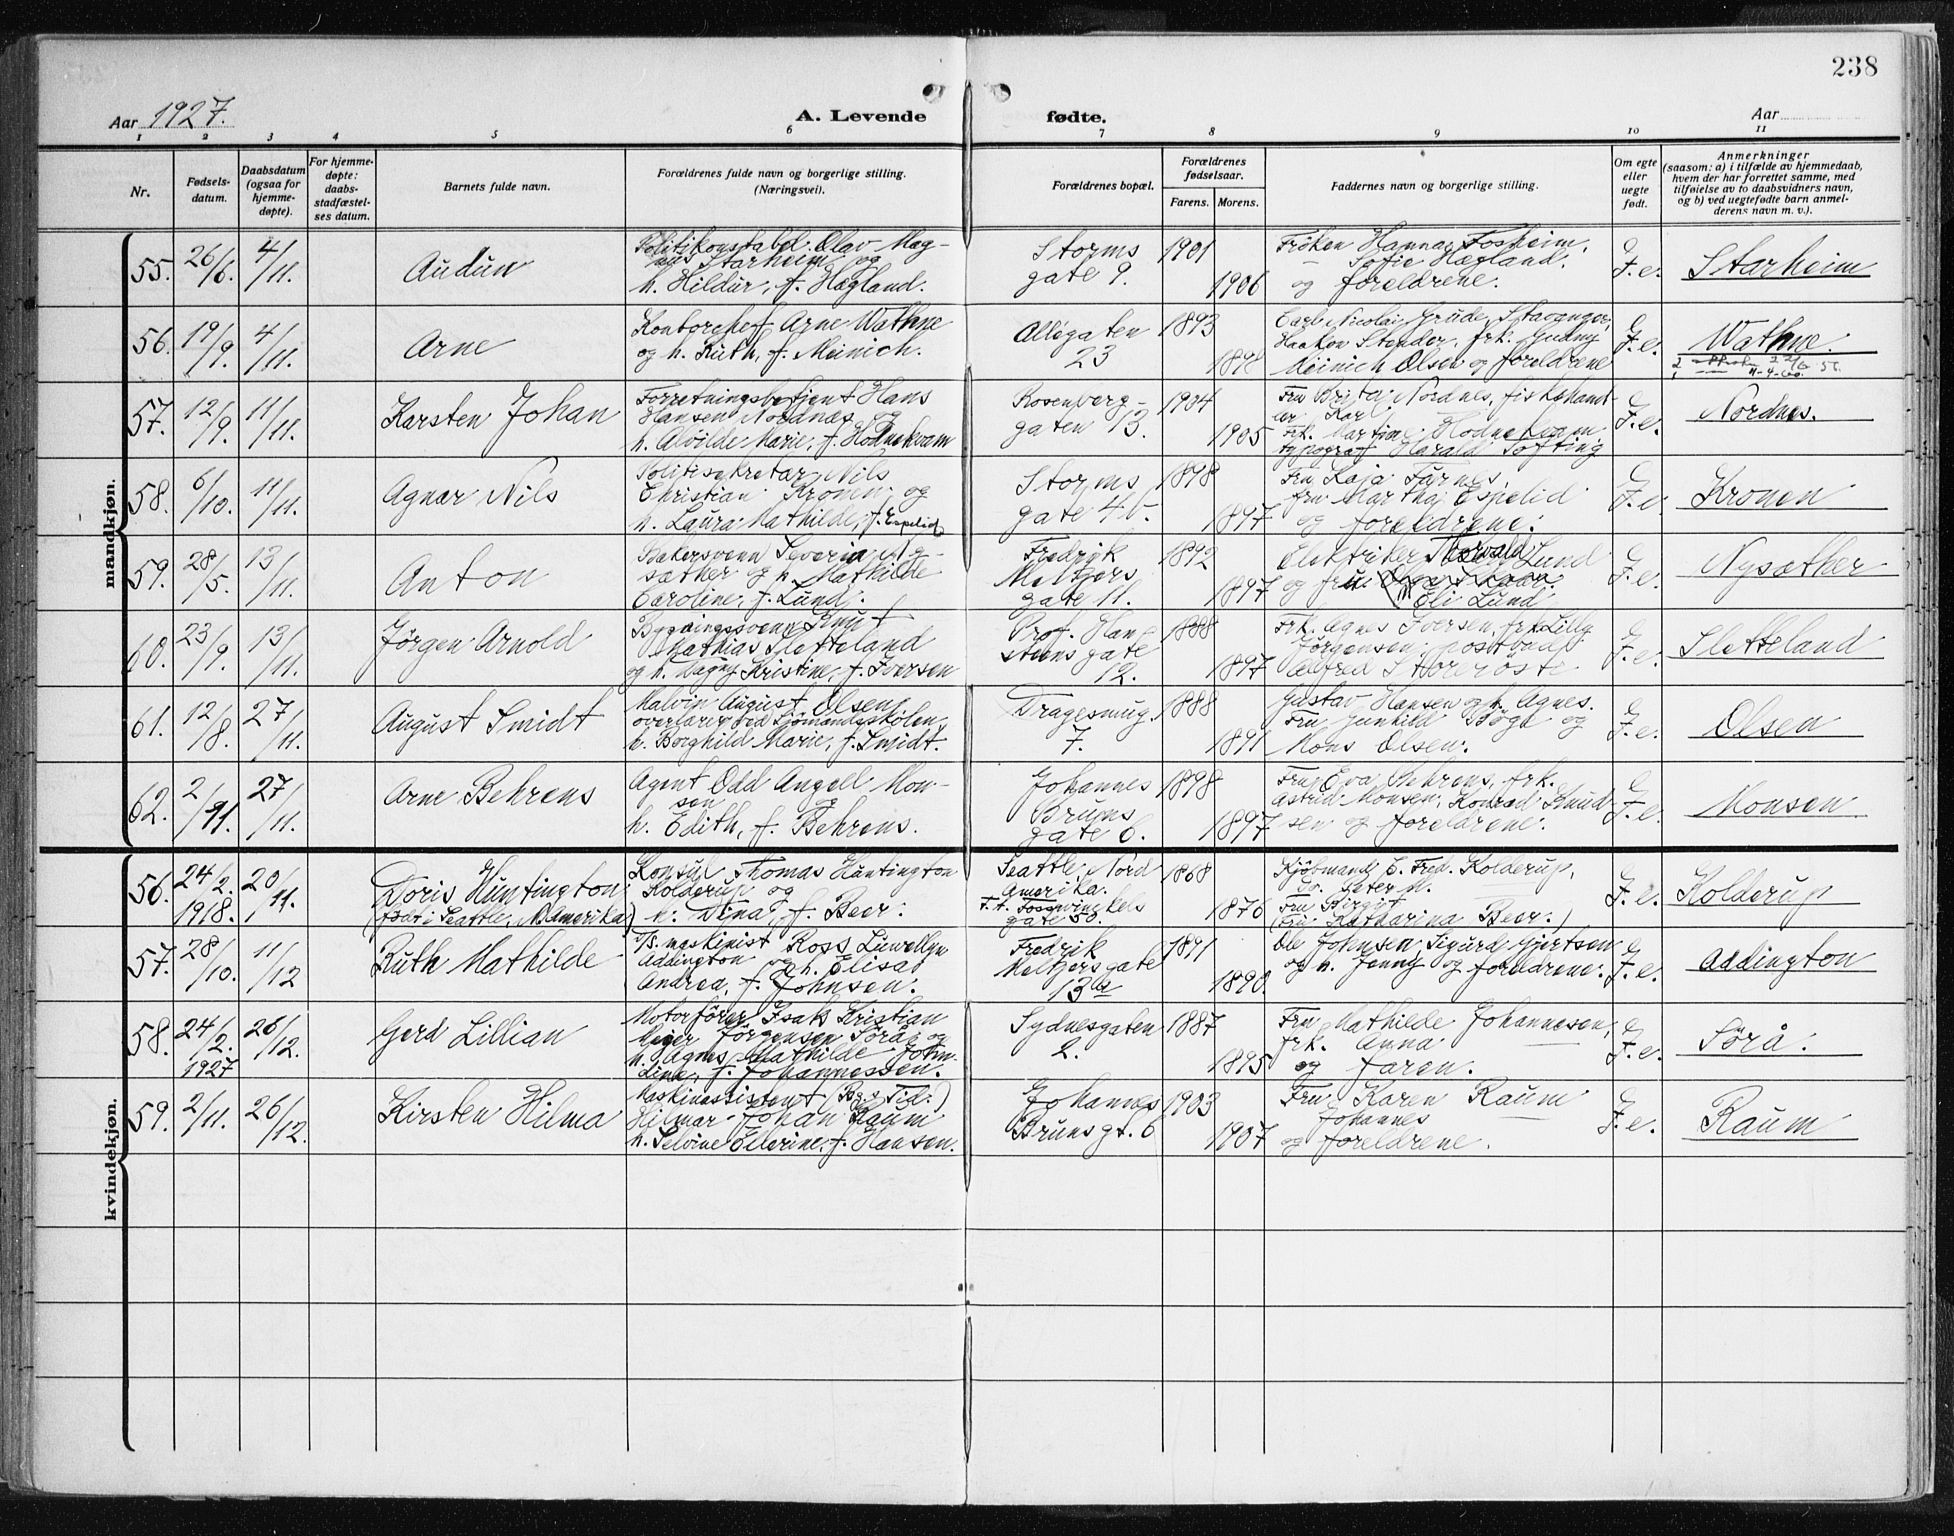 238
Aar 1927.
A. Levende fødte.
Aar
1 2 3 4 5 6 7 8 9 10 11
Nr.
Fødsels-
datum.
Daabsdatum
(ogsaa for
hjemme-
døpte).
For hjemme-
døpte:
daabs-
stadfæstel-
ses datum.
Barnets fulde navn.
Forældrenes fulde navn og borgerlige stilling.
(Næringsvei).
Forældrenes bopæl.
Forældrenes
fødselsaar.
Farens. Morens.
Faddernes navn og borgerlige stilling.
Om egte
eller
uegte
født.
Anmerkninger
(saasom: a) i tilfælde av hjemmedaab,
hvem der har forrettet samme, med
tilføielse av to daabsvidners navn,
og b) ved uegtefødte barn anmel-
derens navn m. v.).
maandkjøn.
55. 26/6. 4/11. Audun
Politikonstabel Olav Mag-
nus Starheim og
h. Hildur, f. Hægland.
Storms
gate 9.
1901
1906
Frøken Hanna Fosheim,
— Sofie Hægland.
og foreldrene.
E.
F. e.
Starheim
56. 19/9. 4/11. Arne
Kontorchef Arne Wathne
og h. Ruth, f. Meinich.
Allégaten
23
1893
1898
Carl Nicolai Grude, Stavanger,
Haakon Stender, frk. Gudny
Meinich Olsen og foreldrene
E.
F. e.
Wathne.
57. 12/9. 11/11. Karsten Johan
Forretningsbetjent Hans
Hansen Nordnæs og
h. Alvilde Marie, f. Hodnekvam
Rosenberg-
gaten 13.
1904
1905
Fru Brita Nordnes, fiskehand-
ler Karl
Frk. Martine Hodnekvam
typograf Harald Softing
E.
F. e.
Nordnes.
58. 6/10. 11/11. Agnar Nils
Politisekretær Nils
Christian Kronen og
h. Laura Mathilde, f. Espelid
Storms
gate 4b.
1898
1897
Fru Kaja Farnes,
fru Martha Espelid
og foreldrene.
E.
F. e.
Kronen
59. 28/5. 13/11. Anton
Bakersvenn Severin Ny-
sæther og h. Mathilde
Caroline, f. Lund.
Fredrik
Meltzers
gate 11.
1892
1897
Elektriker Thorvald Lund
og fru
Eli Lund
E.
F. e.
Nysæther
60. 23/9. 13/11. Jørgen Arnold
Bygningssvenn Knut
Mathias Sletteland
og h. Dagny Kristine, f. Iversen
Prof. Han-
steens gate
12.
1888
1897
Frk. Agnes Iversen, frk. Lilly
Jørgensen, postbud
Alfred Storerøste
E.
F. e.
Sletteland
61. 12/8. 27/11. August Smidt
Malvin August Olsen,
overlærer ved Sjømandsskolen,
h. Borghild Marie, f. Smidt.
Dragesmug.
7.
1888
1891
Gustav Hansen og h. Agnes.
Fru Gunhild Bøge og
Mons Olsen.
E.
F. e.
Olsen
62. 2/11. 27/11. Arne Behrens
Agent Odd Angell Mon-
sen og
h. Edith, f. Behrens.
Johannes
Bruns
gate 6.
1898
1897
Fru Eva Behrens, frk.
Astrid Monsen, Konrad Knud-
sen og foreldrene.
E.
F. e.
Monsen
kvindekjøn.
56. 24/2. 1918. 20/11. Doris Huntington
(født i Seattle, N. Amerika)
Konsul Thomas Huntington
Kolderup og
h. Dina, f. Beer.
Seattle, Nord
Amerika.
t. t. Fosswinckels
gate 50.
1868
1876
Kjøbmand C. Fred. Kolderup,
Do. Peter M.
Fru Birgit
(Fru Katharina Beer.)
E.
F. e.
Kolderup
57. 28/10. 11/12 Ruth Mathilde
T/S. maskinist Ross Liewellyn
Addington og h. Elisa
Andrea, f. Johnsen.
Fredrik
Meltzers gate
13
1891
1890.
Ole Johnsen, Sigurd Gjertsen
og h. Jenny og foreldrene.
E.
F. e.
Addington
58. 24/2. 1927 26/12. Gerd Lillian
Motorfører Isak Kristian
Meier Jørgensen Sørå og
h. Agnes Mathilde Joha-
line, f. Johannessen.
Sydnesgaten
2.
1887
1895
Fru Mathilde Johannesen,
frk. Anna
og faren.
E.
F. e.
Sørå.
59. 2/11. 26/12. Kirsten Hilma
Maskinassistent (Berg. Tid.)
Hilmar Johan Raum
h. Selvine Elerine, f. Hansen.
Johannes
Bruns gt. 6
1903
1907
Fru Karen Raum
Johannes
og foreldrene.
E.
F. e.
Raum